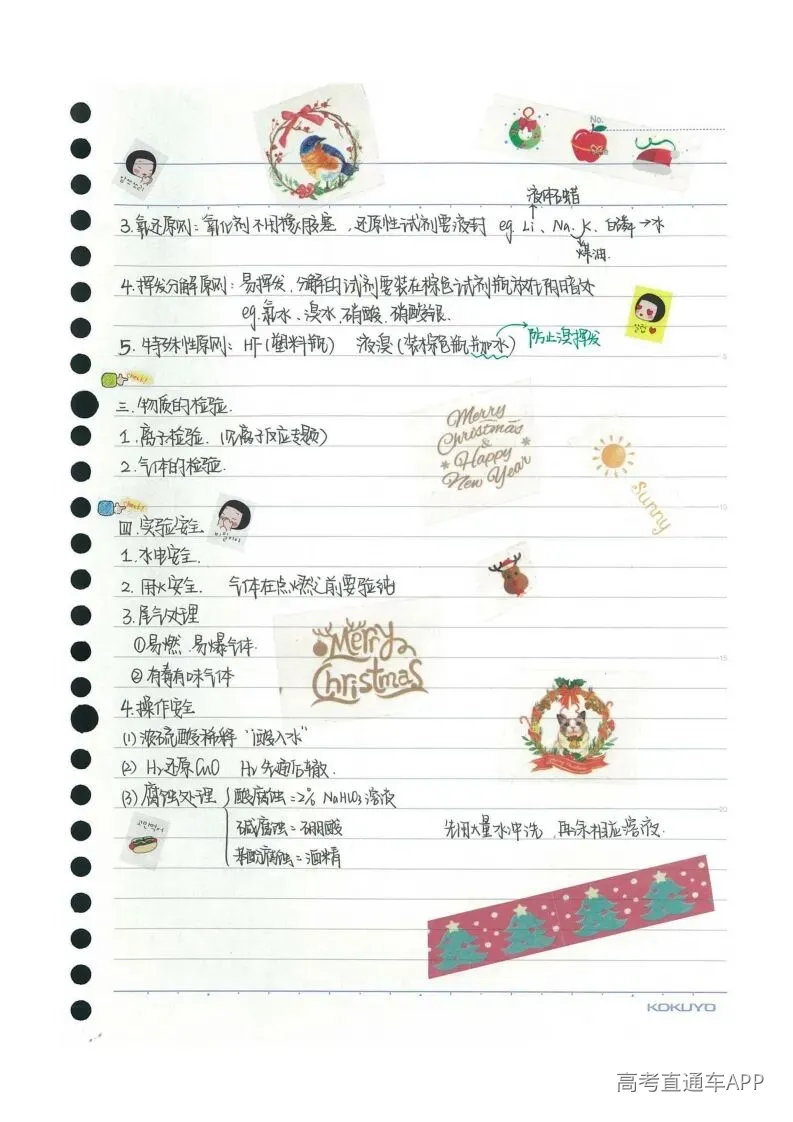 No.
液体石蜡
3.氧化还原原则:氧化剂不用橡胶塞,还原性试剂要液封 eg. Li、Na、K、白磷→水
煤油.
4.挥发分解原则:易挥发、分解的试剂要装在棕色试剂瓶放在阴暗处
eg.氯水、溴水、硝酸、硝酸银.
5.特殊性原则:HF(塑料瓶) 液溴(装棕色瓶并加水) 防止溴挥发
check!
三.物质的检验.
1.离子检验.(见离子反应专题)
2.气体的检验.
Merry
Christmas
&
Happy
New Year
Sunny
check!
四.实验安全.
1.水电安全.
2.用火安全. 气体在点燃之前要验纯
3.尾气处理
①易燃、易爆气体.
②有毒有味气体
Merry
Christmas
4.操作安全
(1)浓硫酸稀释“酸入水”
(2) H₂还原CuO H₂先通后撤.
(3)腐蚀处理 酸腐蚀=2% NaHCO₃溶液
碱腐蚀=硼酸 先用大量水冲洗,再涂相应溶液.
苯酚腐蚀=酒精
KOKUYO
高考直通车APP